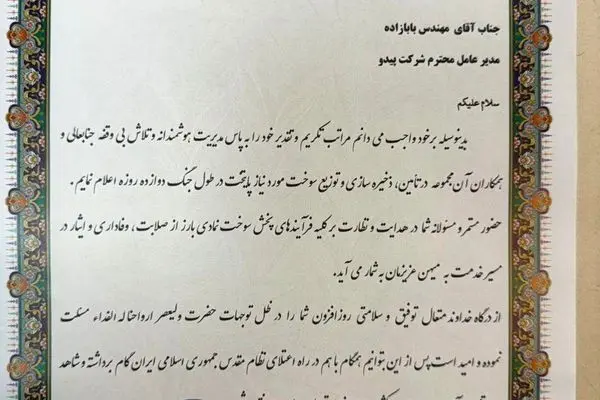 جناب آقای مهندس بابازاده
مدیر عامل محترم شرکت پیدو
سلام علیکم
بدینوسیله بر خود واجب می دانم مراتب تکریم و تقدیر خود را به پاس مدیریت هوشمندانه و تلاش بی وقفه جنابعالی و
همکاران آن مجموعه در تأمین، ذخیره سازی و توزیع سوخت مورد نیاز پایتخت در طول جنگ دوازده روزه اعلام نمایم.
حضور مستمر و مسئولانه شما در هدایت و نظارت بر کلیه فرآیندهای پخش سوخت نمادی بارز از صلابت، وفاداری و ایثار در
مسیر خدمت به میهن عزیزمان به شمار می آید.
از درگاه خداوند متعال توفیق و سلامتی روزافزون شما را در ظل توجهات حضرت ولیعصر ارواحنا له الفداء مسئلت
نموده و امید است پس از این بتوانیم همگام با هم در راه اعتلای نظام مقدس جمهوری اسلامی ایران گام برداشته و شاهد